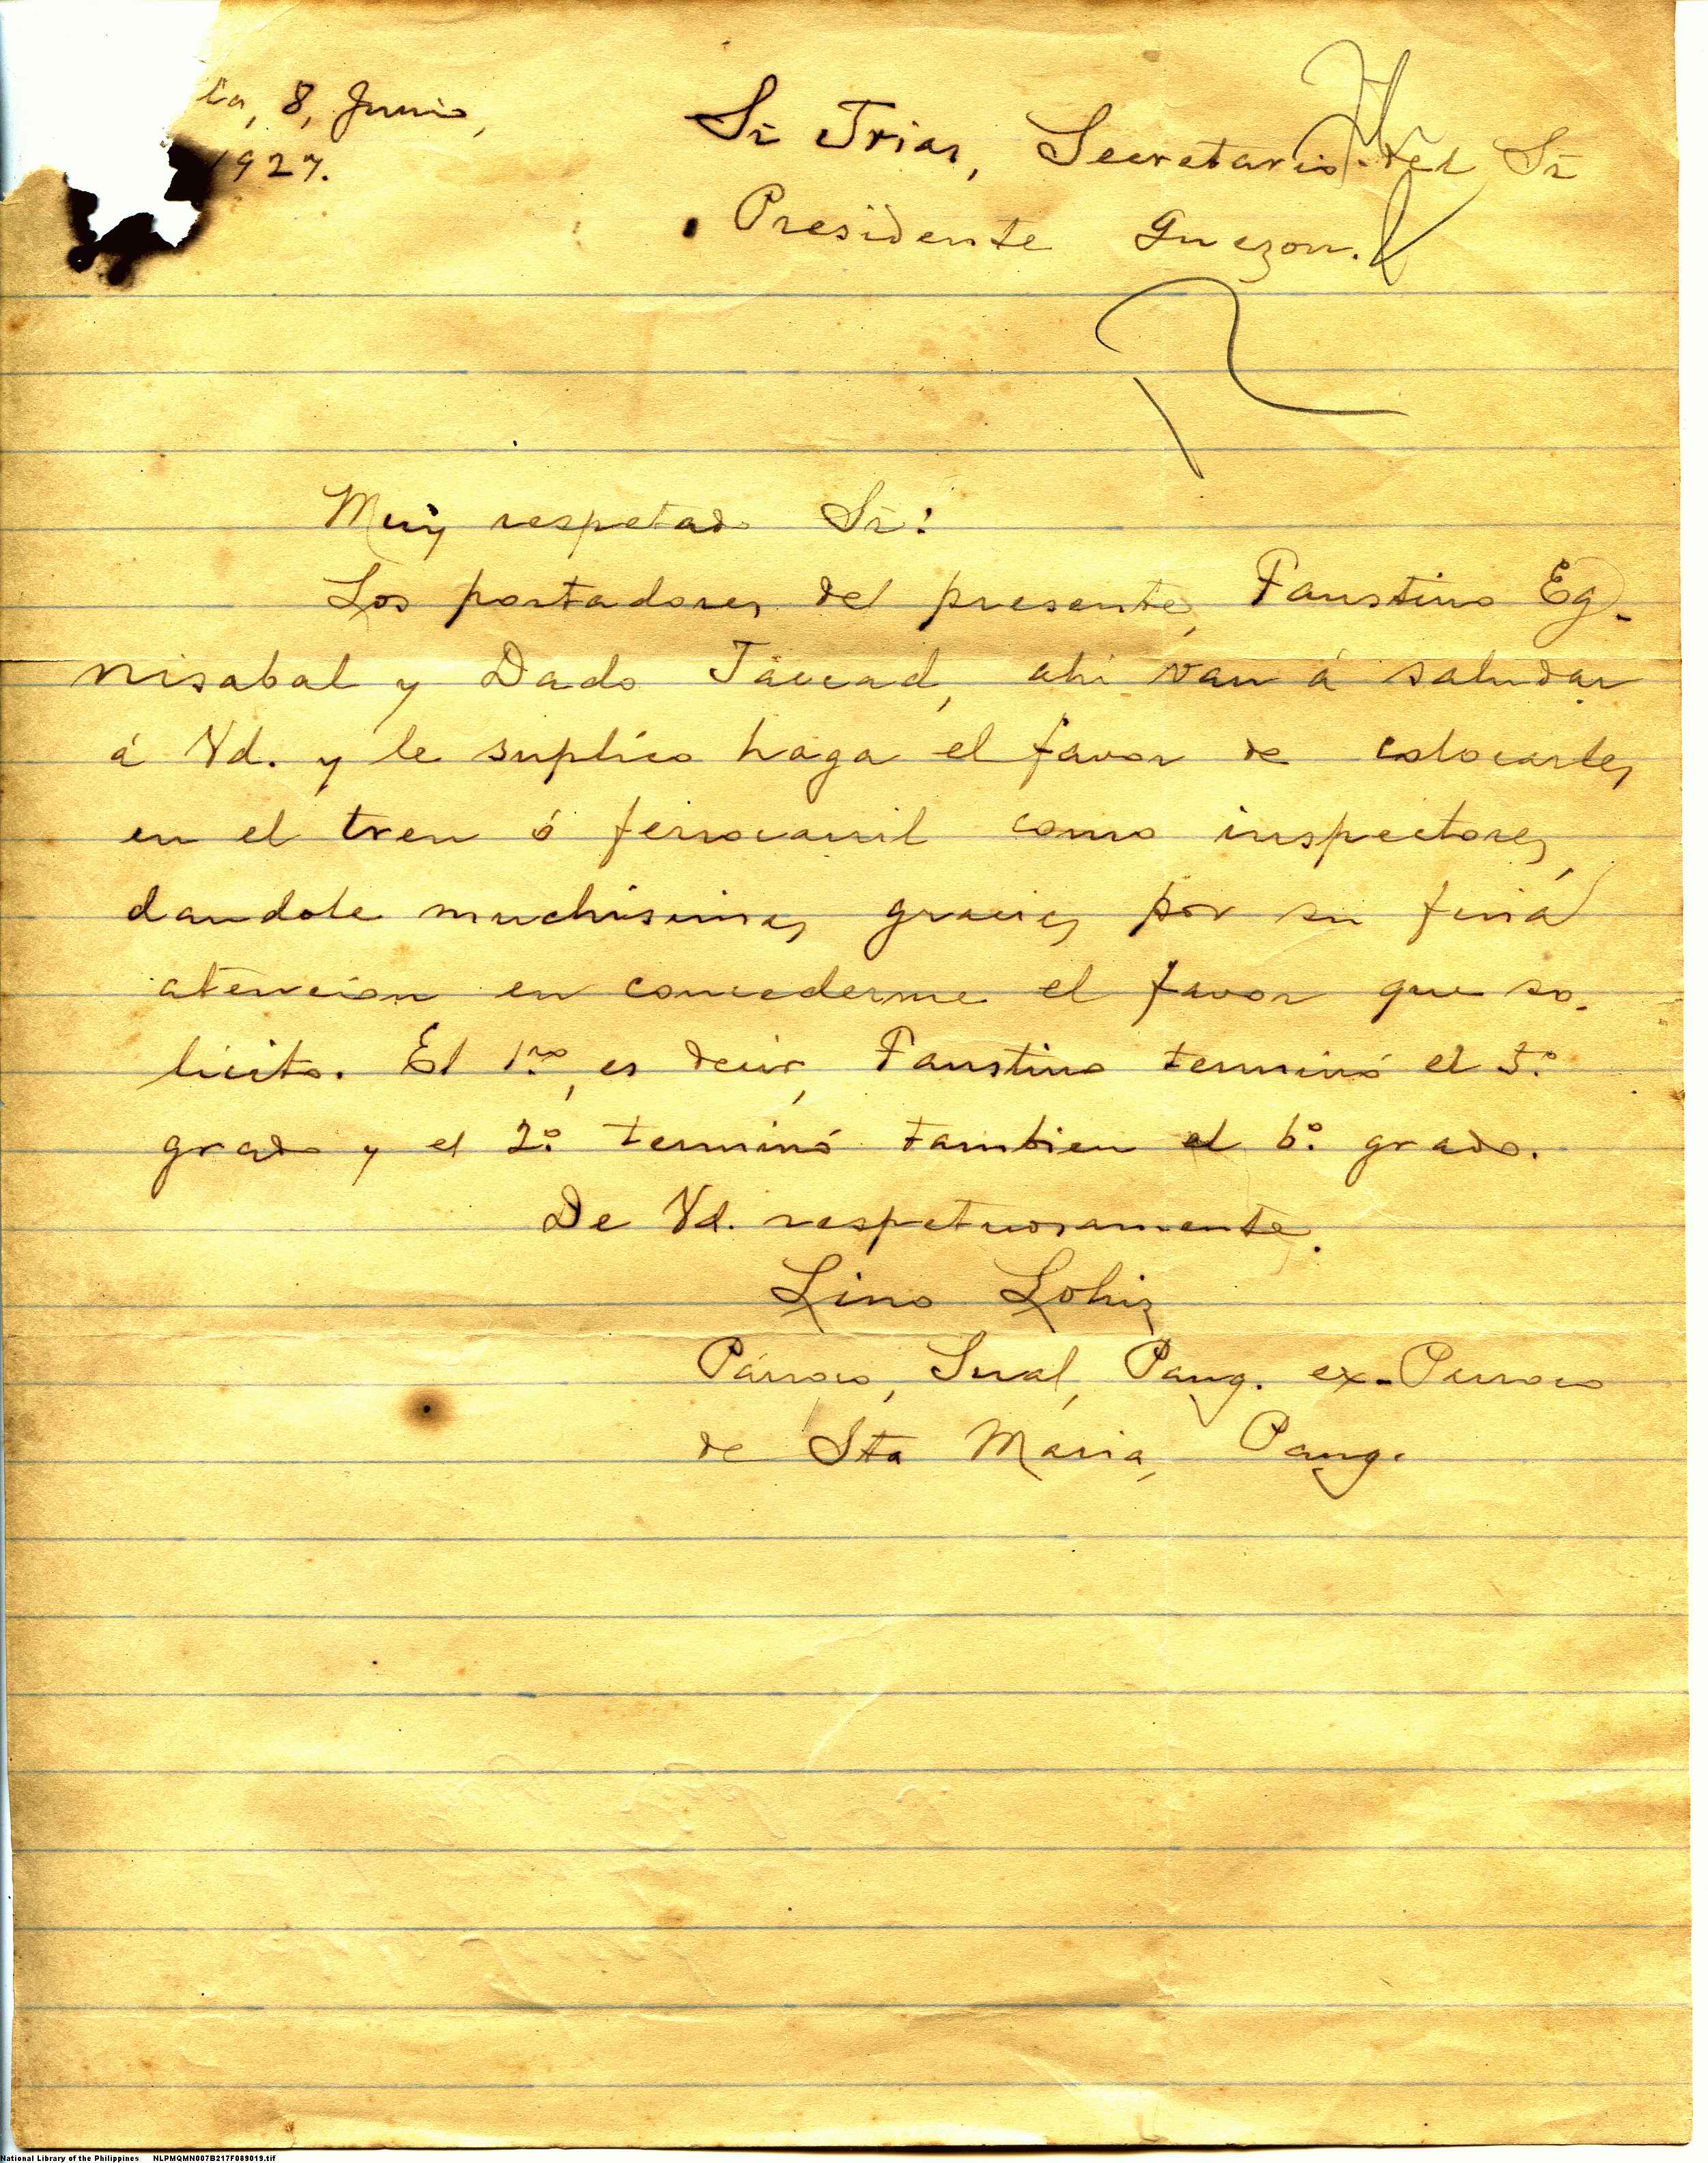 la, 8, Junio,
1927.
Sr Trias, Secretario del Sr
Presidente Quezon.
Muy respetado Sr:
Los portadores del presente, Faustino Eg-
nisabal y Dado Taccad, ahi van á saludar
á Vd. y le suplico haga el favor de colocarles
en el tren ó ferrocarril como inspectores,
dandole muchisimas gracias por su fina
atencion en concederme el favor que so-
licito. El 1ro, es decir, Faustino terminó el 5º
grado y el 2º terminó tambien el 6º grado.
De Vd. respetuosamente.
Lino
Párroco, Sual, Pang. ex-Perroco
de Sta Maria, Pang.
National Library of the Philippines NLPMQMN007B217F089019.tif